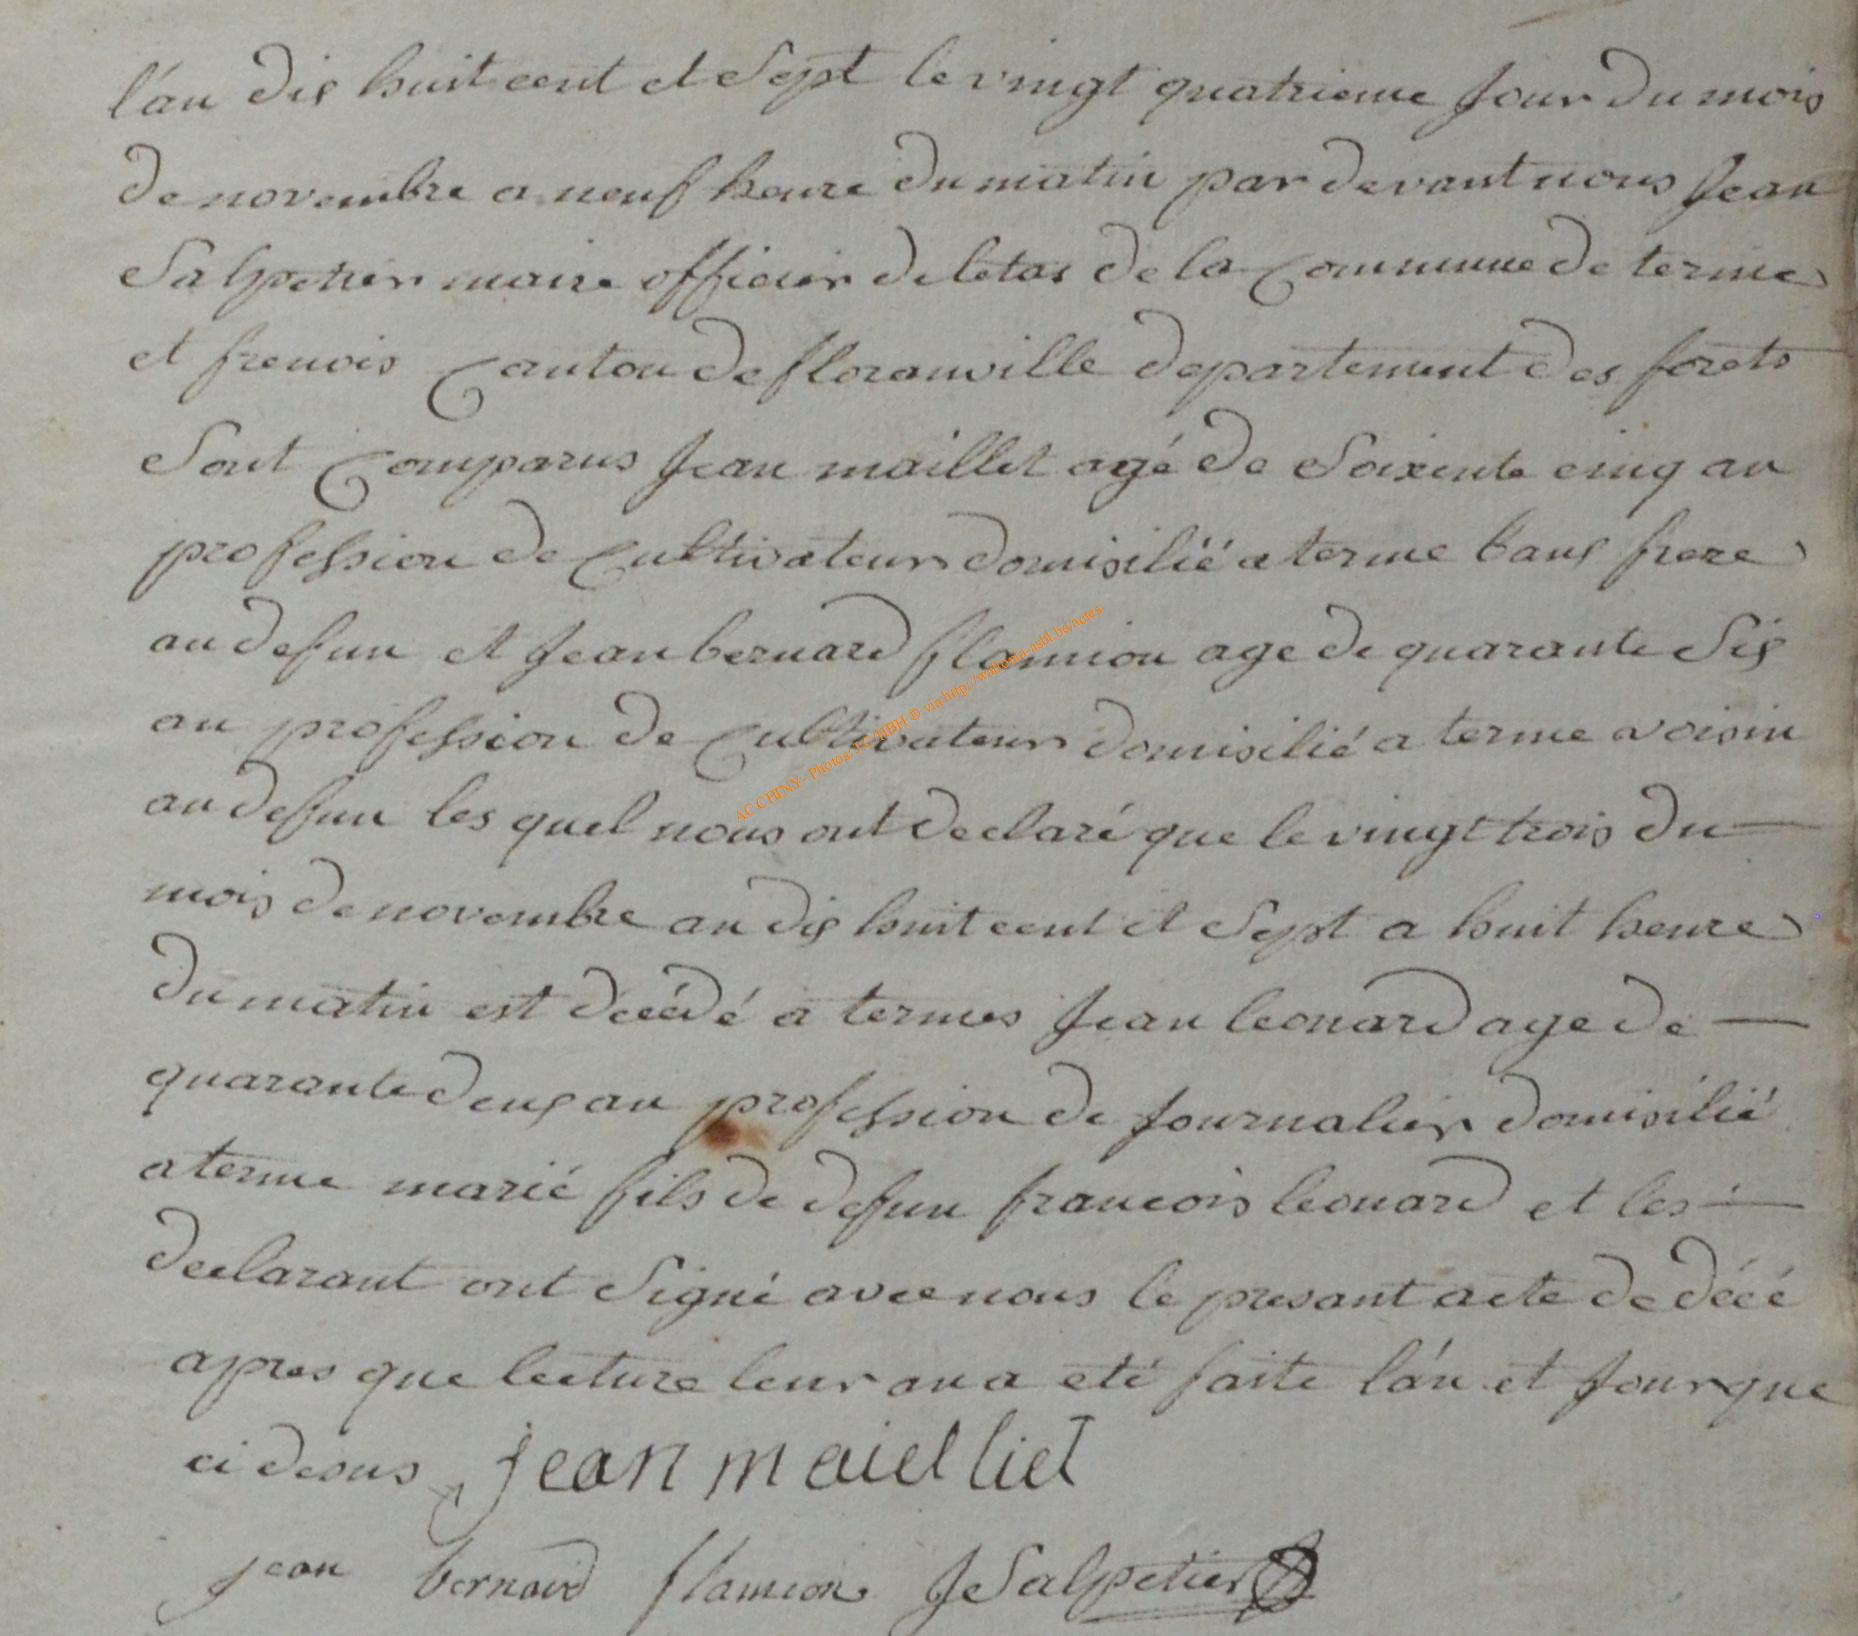 l'an dix huit cent et Sept le vingt quatrieme Jour du mois
de novembre a neuf heure du matin par devant nous Jean
Salpetier maire officier de letat de la Commune de terme
et frenois Canton de floranville departement des forets
Sont Comparus Jean maillet agé de Soixente cinq an
profession de Cultivateur domisilié a terme baux frere
au defun et Jean bernard flamion age de quarante Six
an profession de Cultivateur domisilié a terme voisin
au defun les quel nous ont declaré que le vingt trois du
mois de novembre an dix huit cent et Sept a huit heure
du matin est décédé a termes Jean leonard age de
quarante deux an profession de Journalier domisilié
a terme marié fils de defun francois leonard et les
declarant ont Signé avec nous le presant acte de décé
apres que lecture leur an a eté faite l'an et Jour que
ci desus jean maielliet
jean bernard flamion J Salpetier
AC CHINY - Photos TC/JBH © via http://wallonia-asbl.be/actes